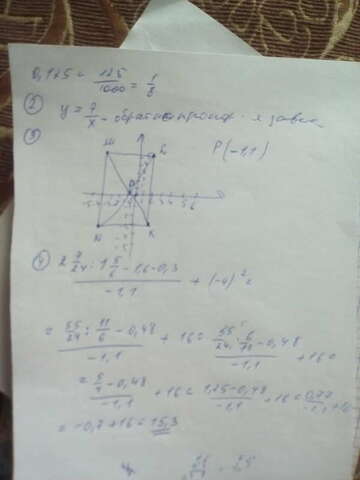 0,125 = 125/1000 = 1/8
② y = 7/x - обратно пропор.
③
M L P(-1,1)
N K
④ 2 7/24 : 1 5/6 - 1,6 · 0,3 / -1,1 + (-4)² =
= 55/24 : 11/6 - 0,48 / -1,1 + 16 = 55/24 · 6/11 - 0,48 / -1,1 + 16 =
= 5/4 - 0,48 / -1,1 + 16 = 1,25 - 0,48 / -1,1 + 16 = 0,77 / -1,1 + 16
= -0,7 + 16 = 15,3